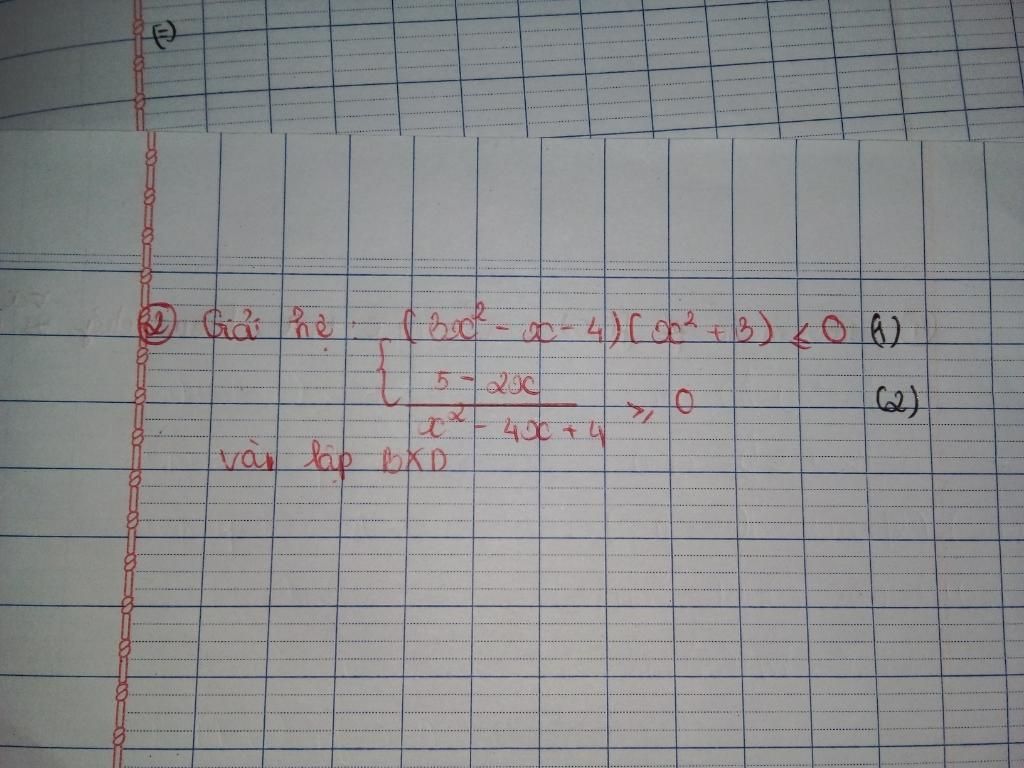 (=)
2) Giải hệ: { (3x² - x - 4)(x² + 3) ≤ 0 (1)
(5 - 2x)/(x² - 4x + 4) ≥ 0 (2)
và lập BXD